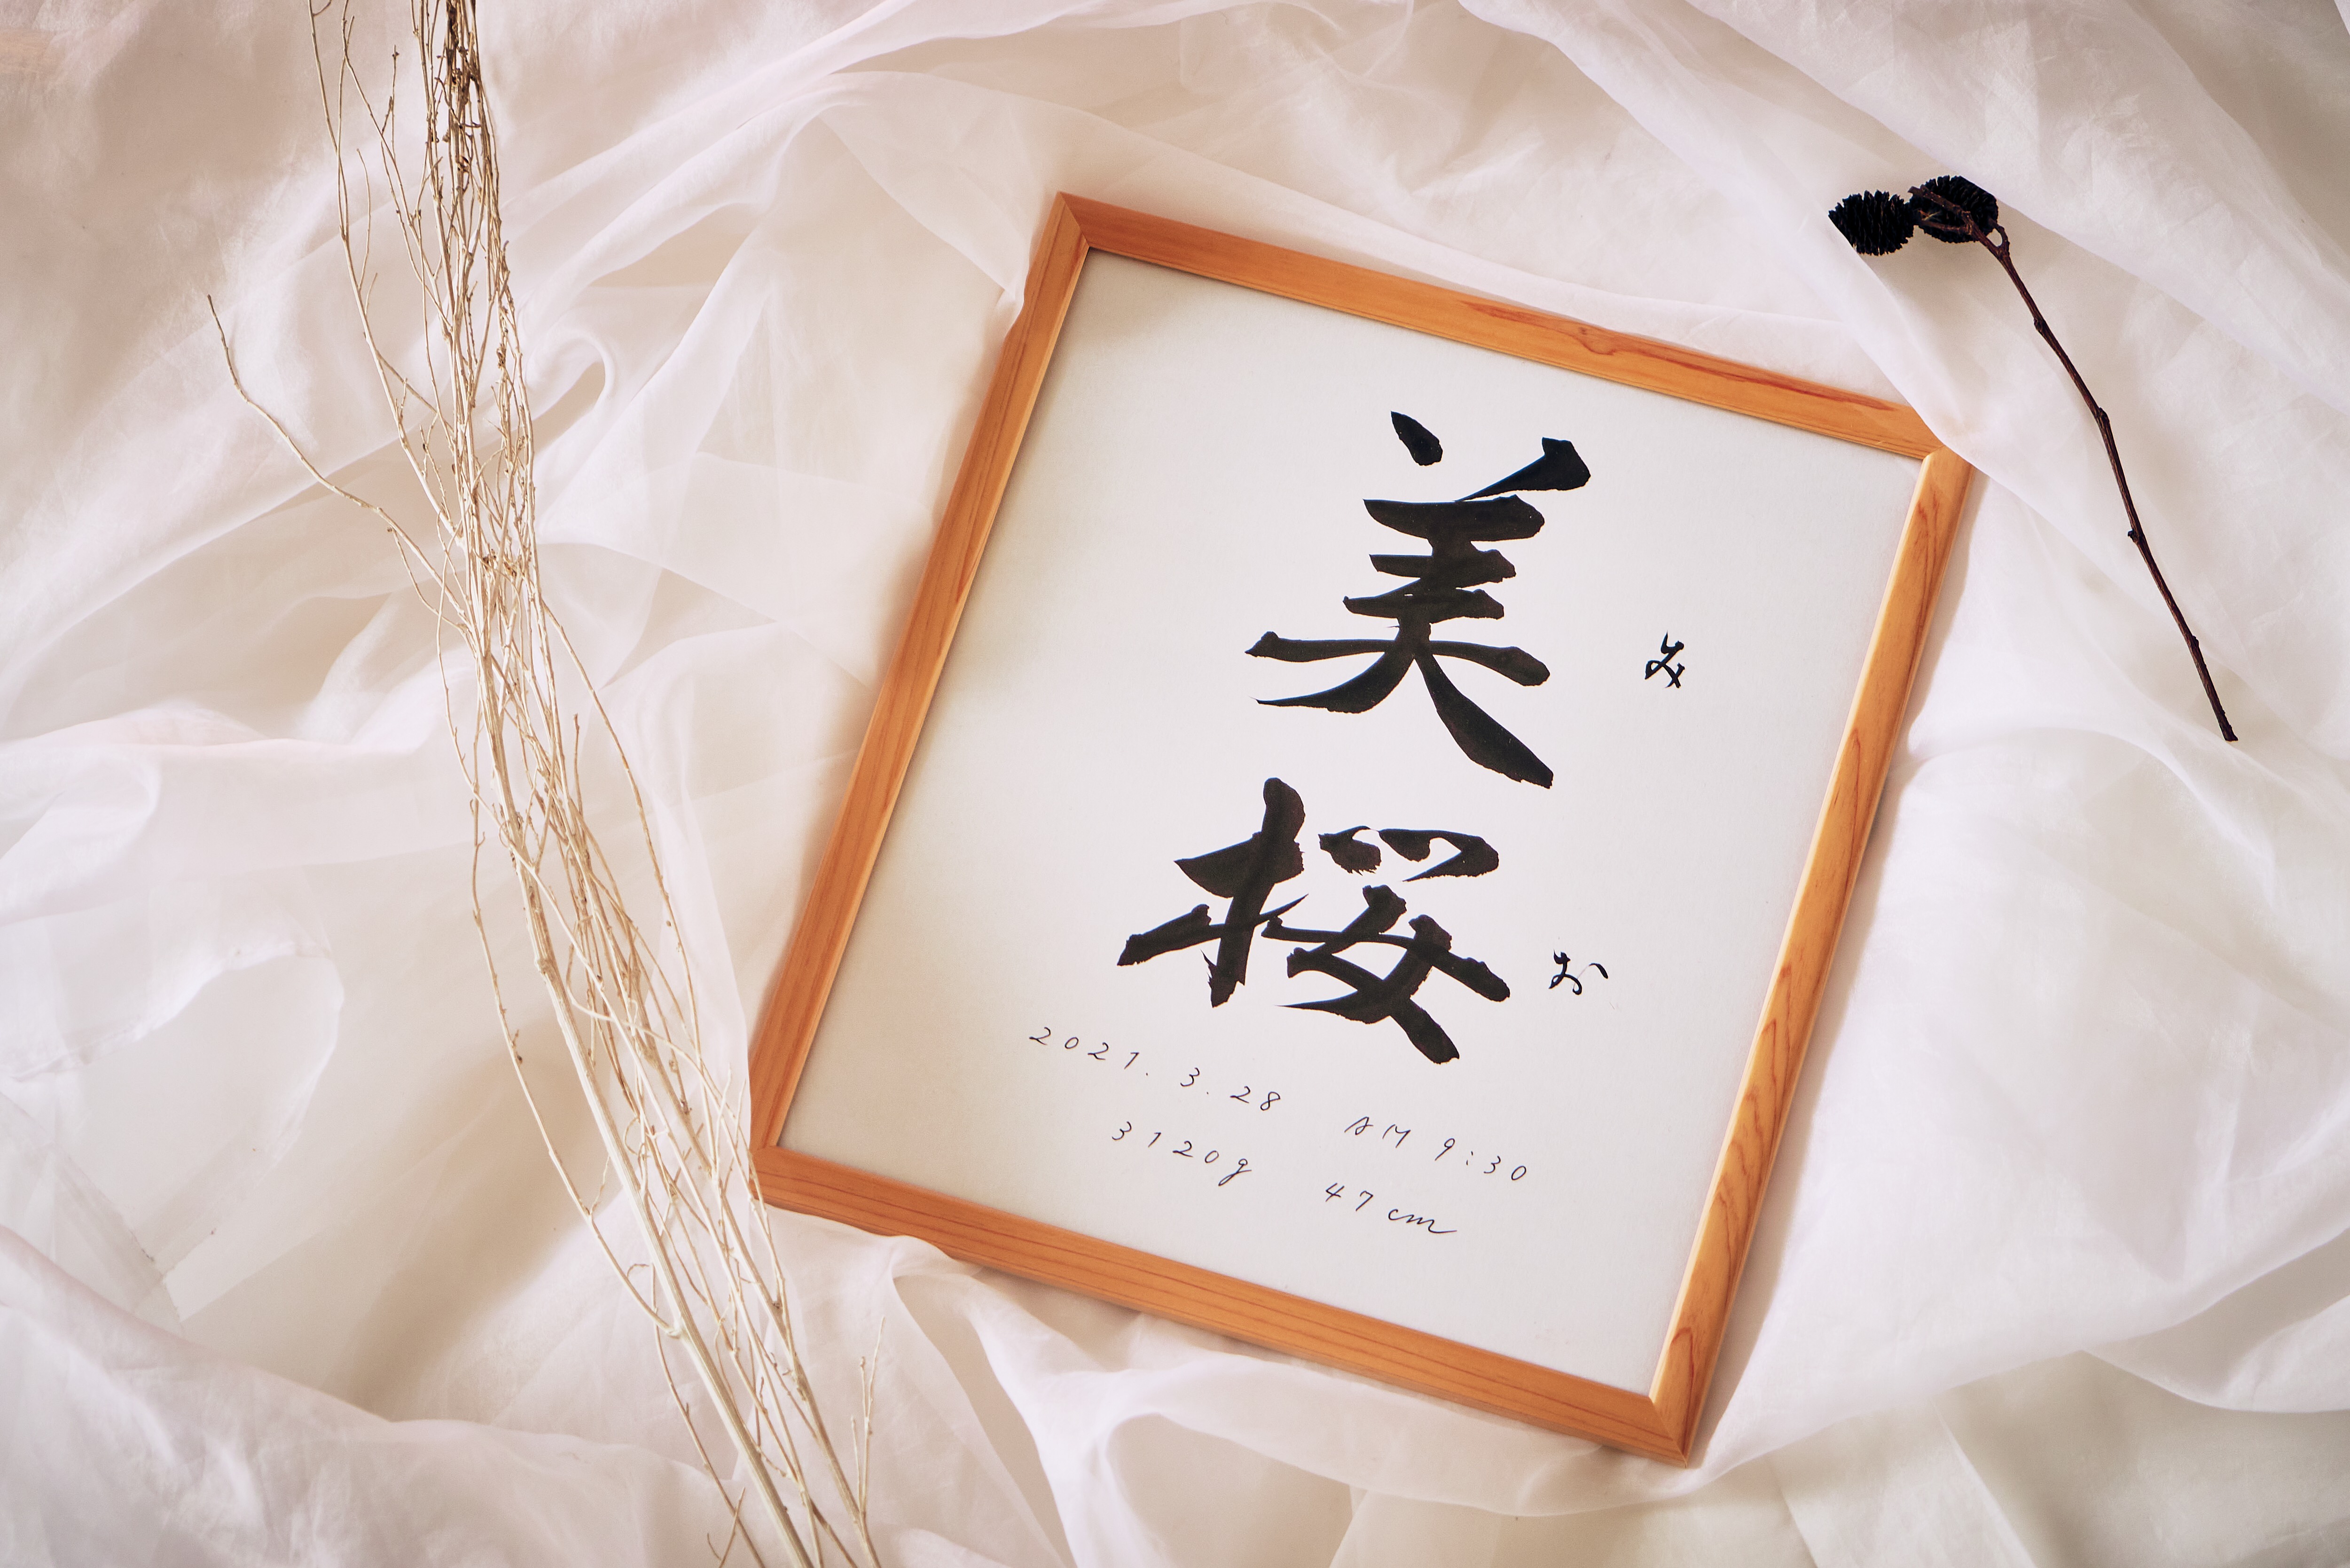 美桜
みお
2021.3.28 AM 9:30
3120g 47cm